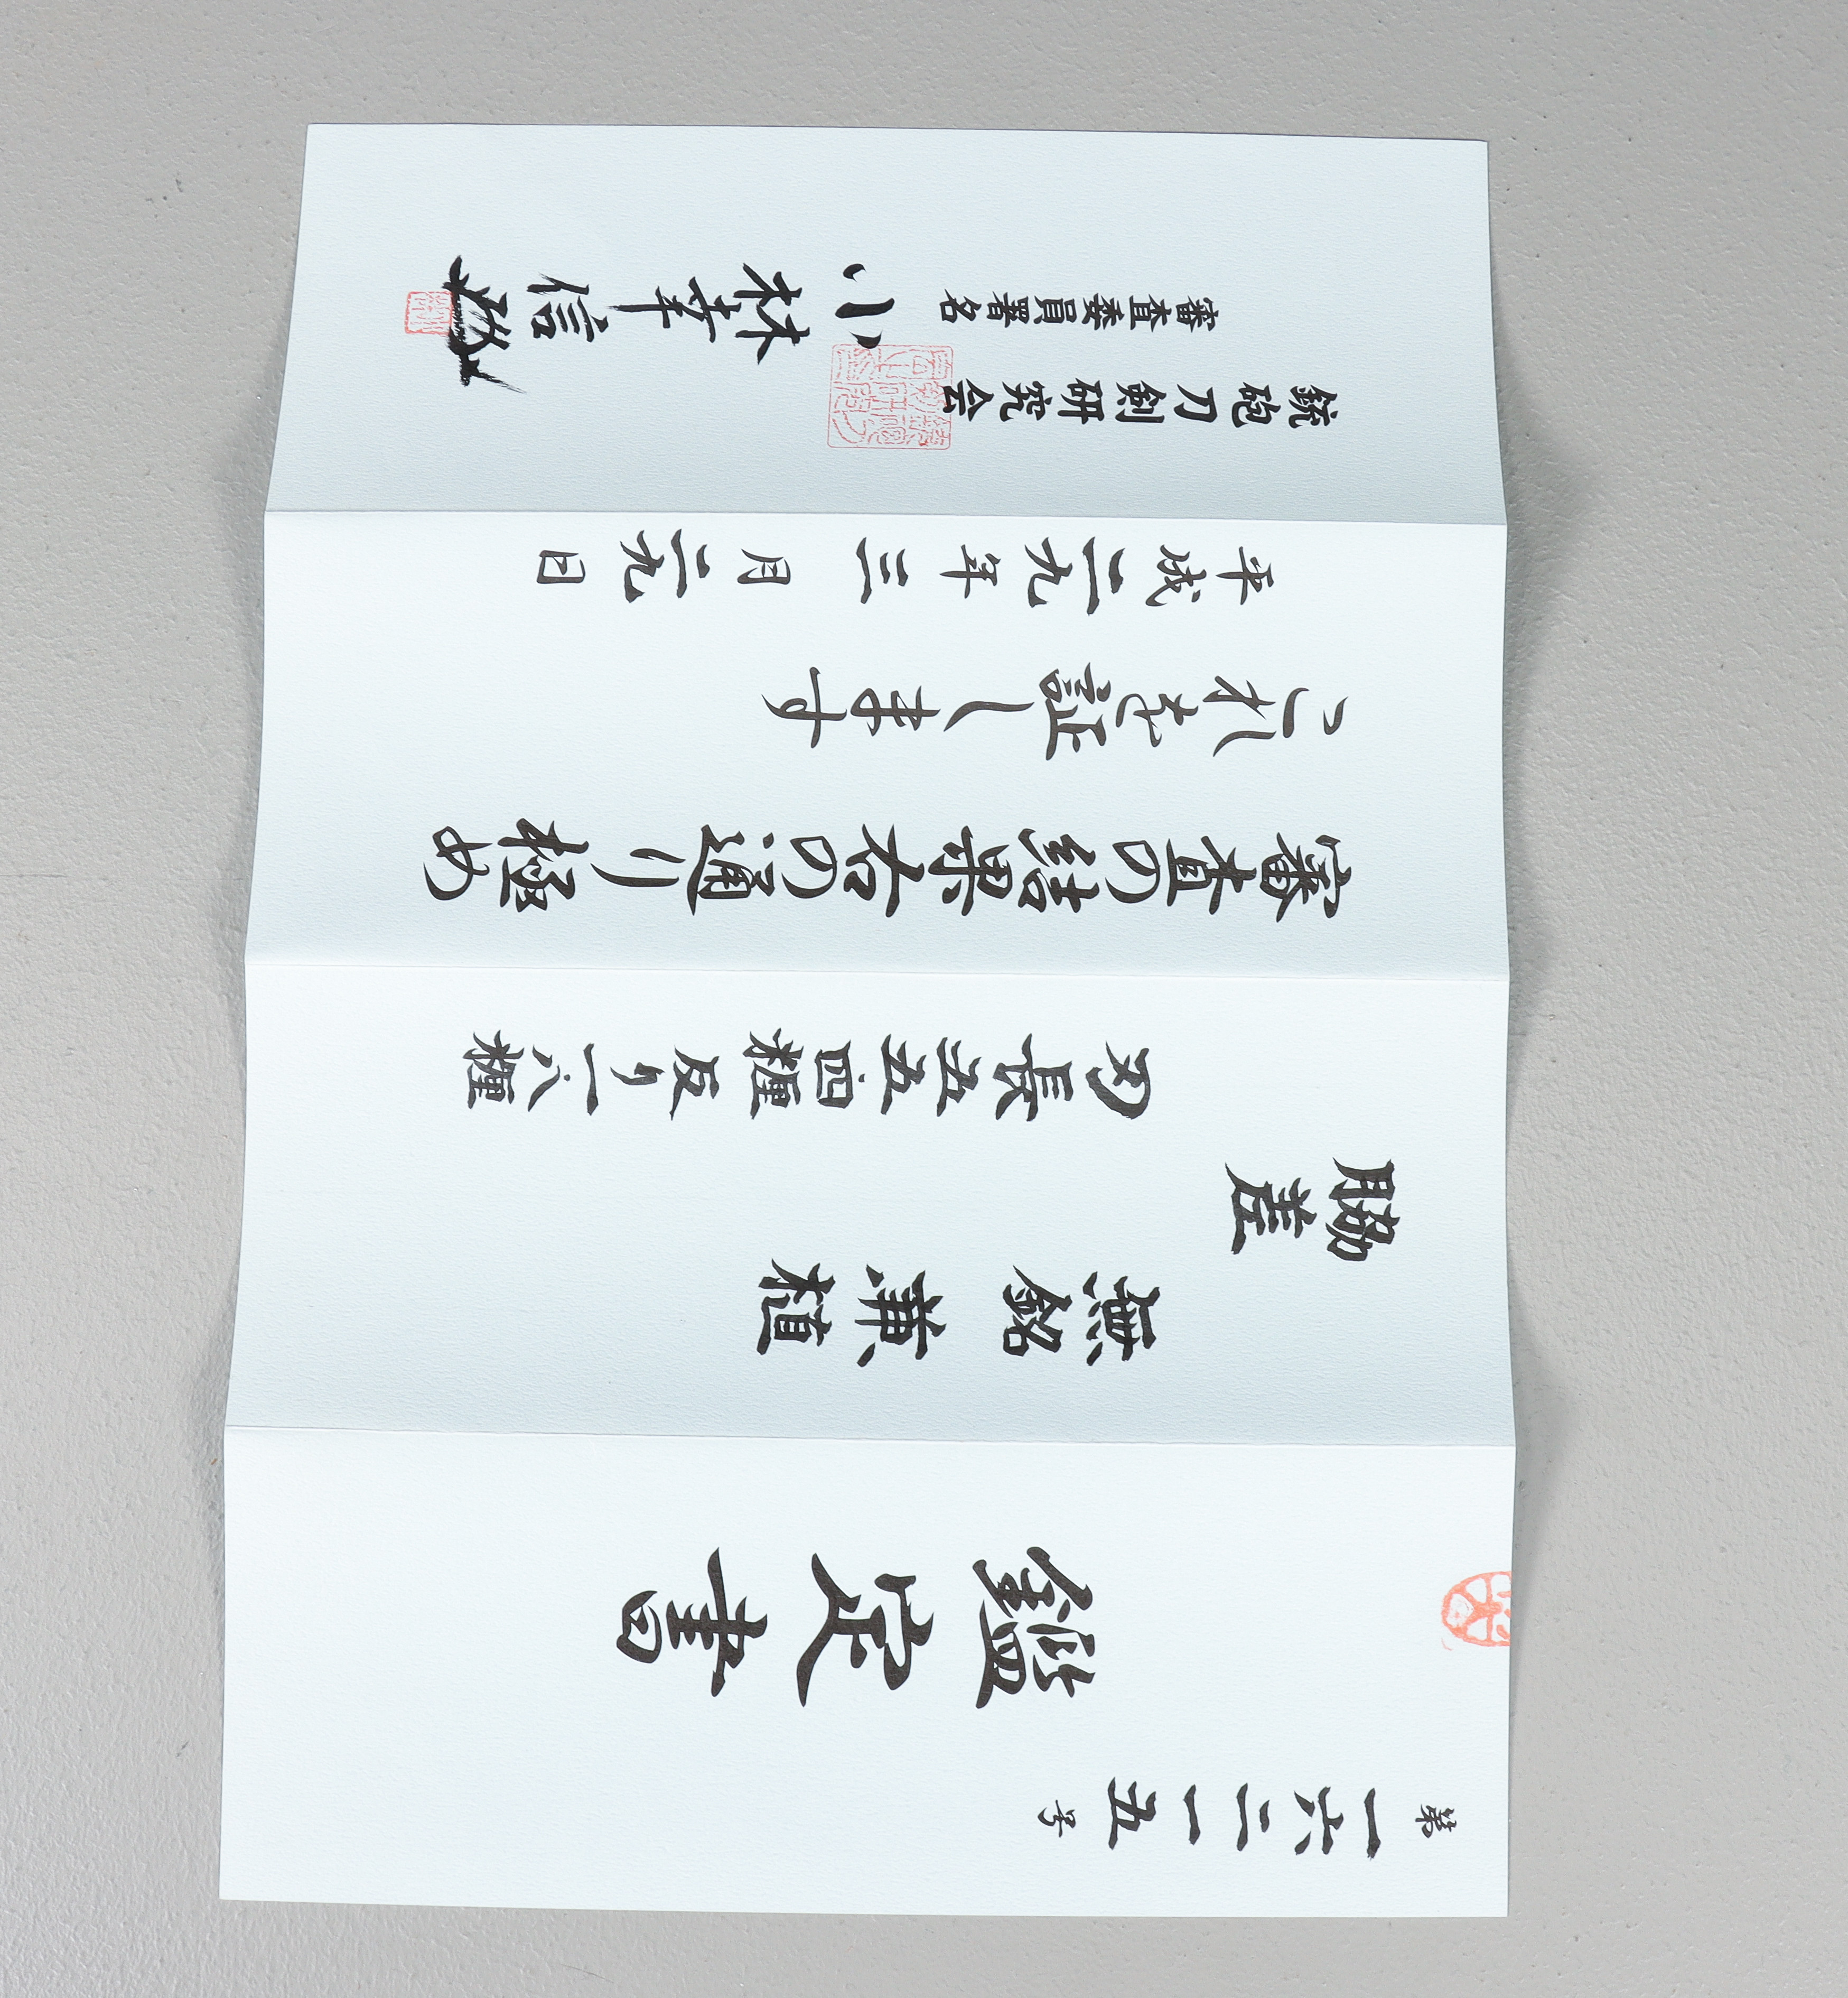 第一六二一五号
鑑定書
脇差
無銘 兼植
刃長五五・四糎 反り一・八糎
審査の結果右の通り極め
これを証します
平成二九年三月二九日
銃砲刀剣研究会
審査委員署名
小林幸信